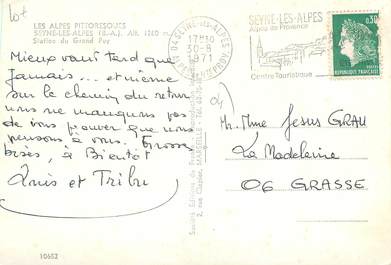 LES ALPES PITTORESQUES
SEYNE-LES-ALPES (B.-A.), Alt. 1260 m.
Station du Grand Puy
Mieux vaut tard que
Jamais... et même
sur le chemin du retour
nous ne manquons pas
de vous prouver que nous
pensons à vous. Grosses
bises, à Bientôt!
Louis et Tribu
10652
17H30
30-8
1971
SEYNE-LES-ALPES
Alpes de Provence
Centre Touristique
0,30
REPUBLIQUE FRANÇAISE
Mr. Mme Jesus GRAU
La Madeleine
06 GRASSE